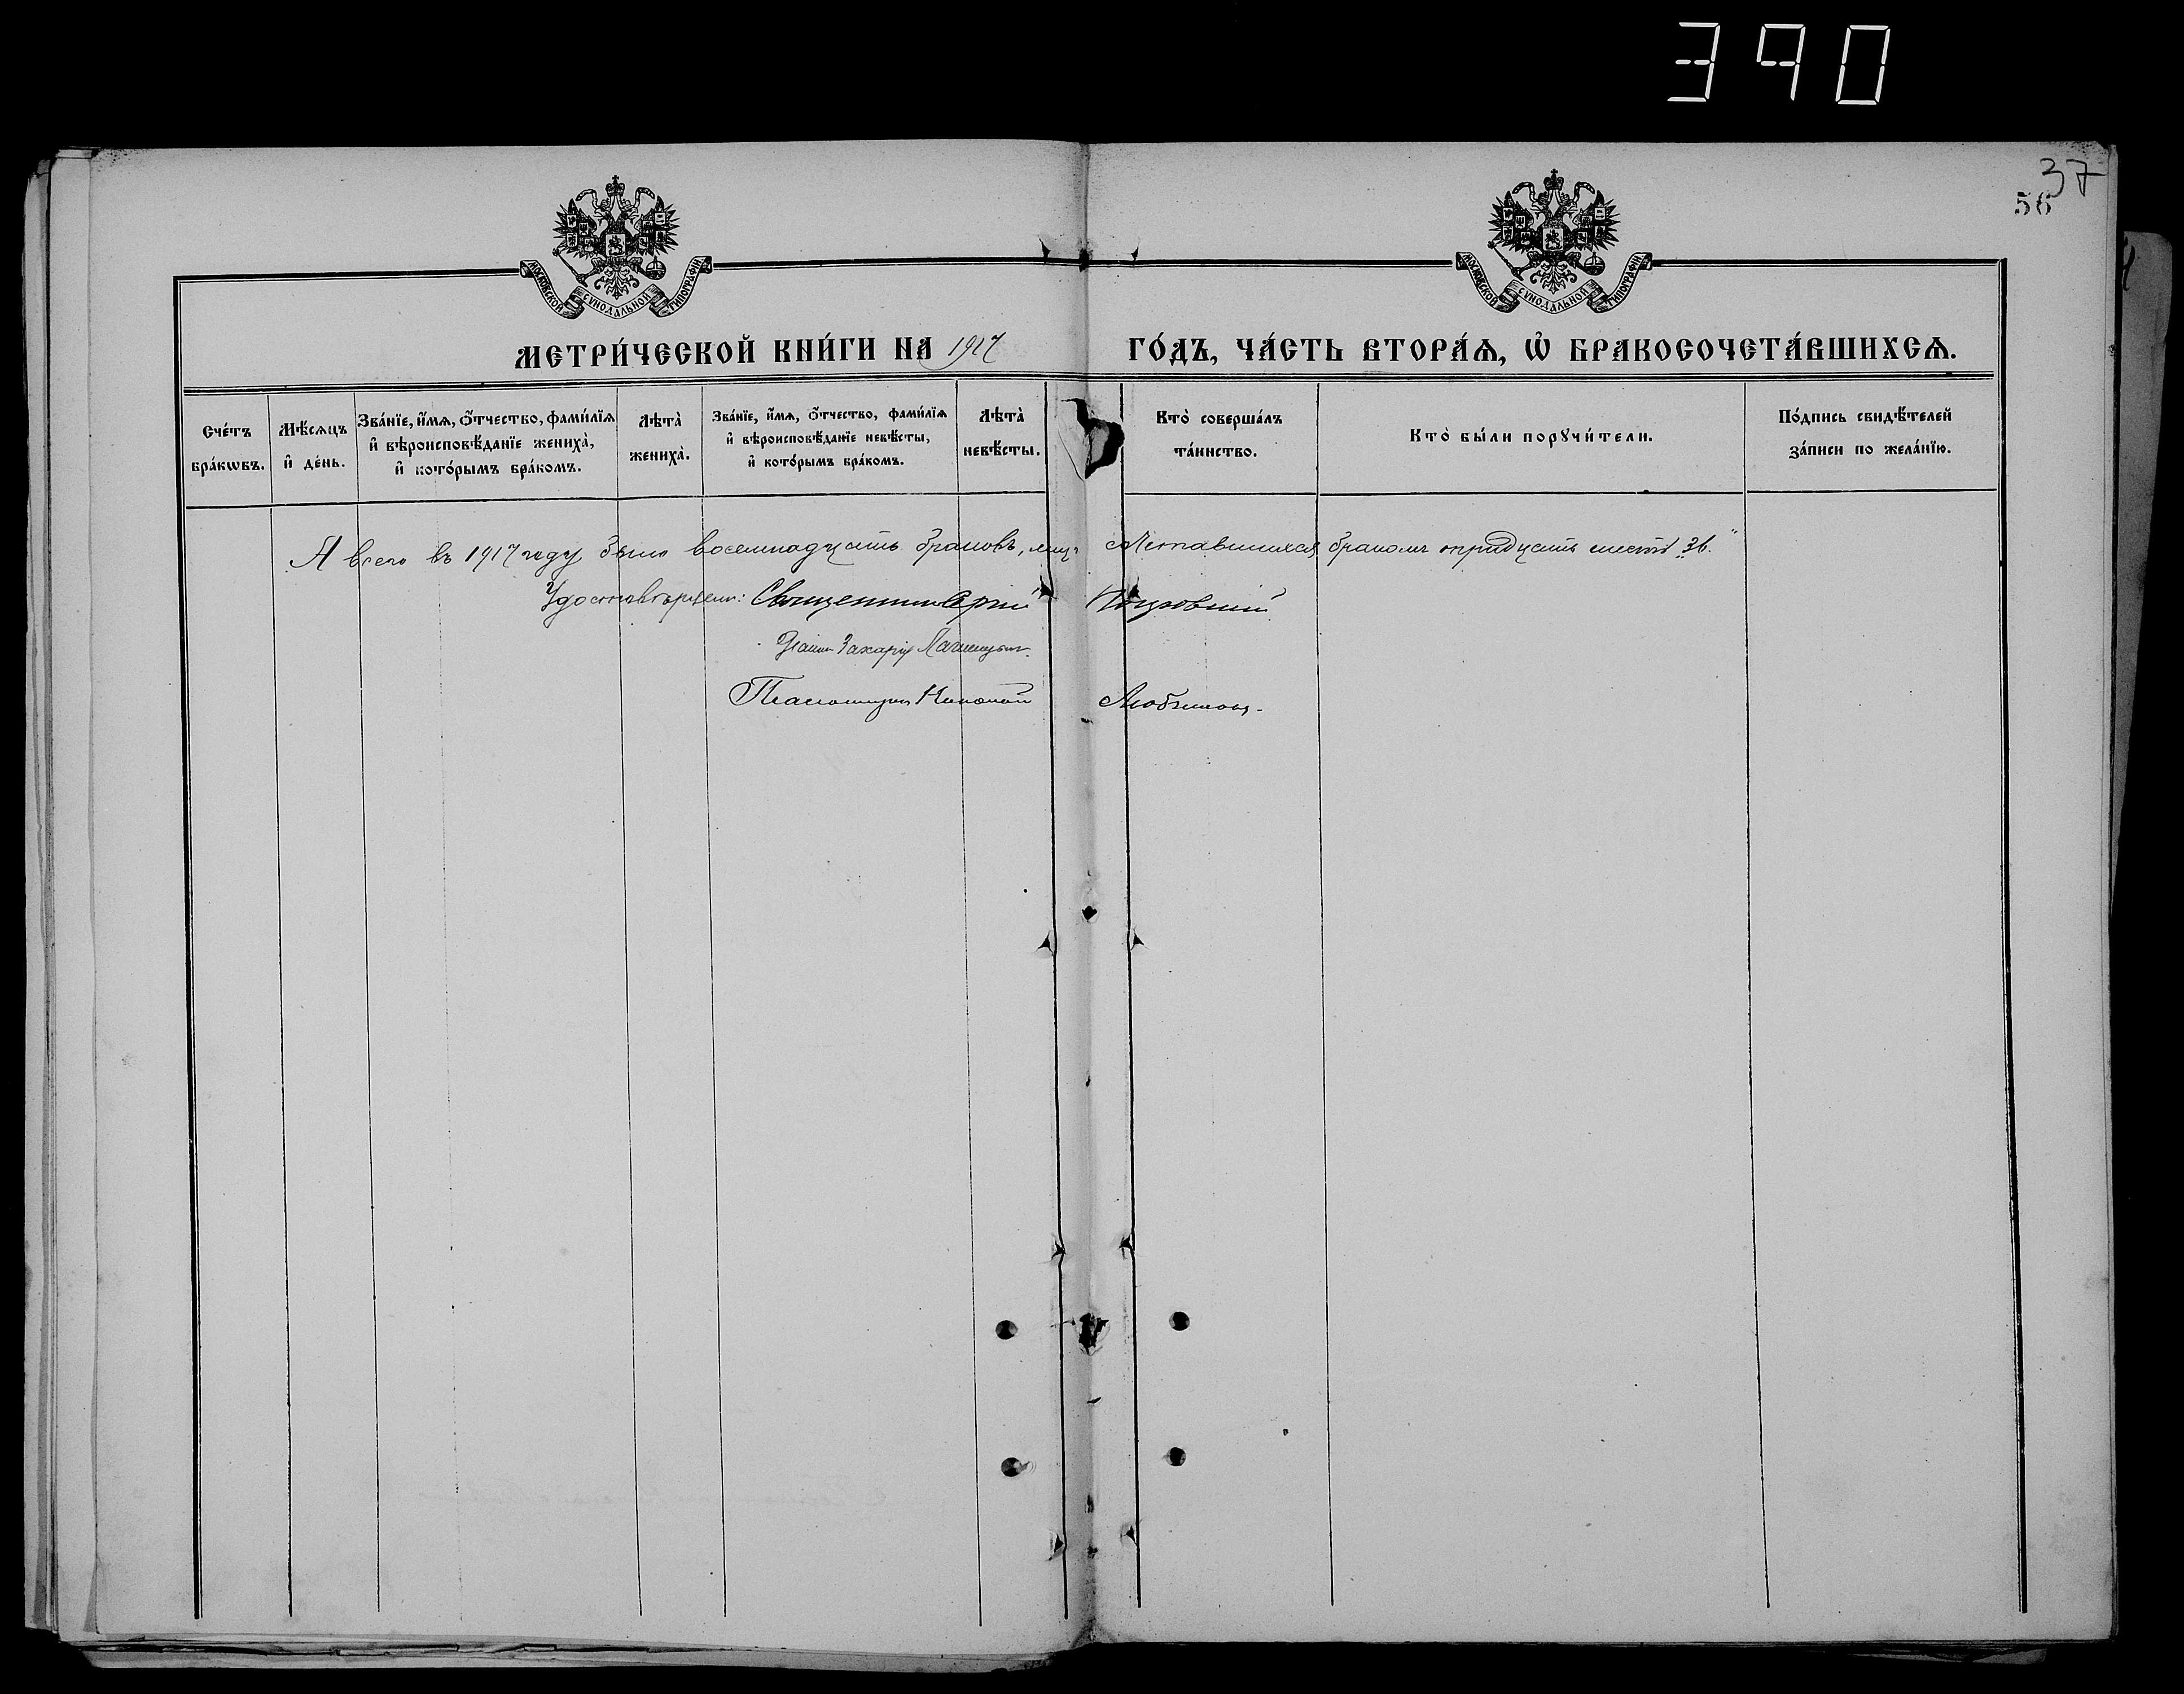 390
37
56
МОСКОВСКОЙ СУНОДАЛЬНОЙ ТИПОГРАФІИ
МОСКОВСКОЙ СУНОДАЛЬНОЙ ТИПОГРАФІИ
МЕТРИ́ЧЕСКОЙ КНИ́ГИ НА 1917 ГО́ДЪ, ЧА́СТЬ ВТОРА́Ѧ, Ѽ БРАКОСОЧЕТА́ВШИХСѦ.
Сче́тъ бра́кѡвъ.
Мѣ́сѧцъ и҆ де́нь.
Зва́нїе, и҆́мѧ, ѻ҆́тчество, фами́лїѧ и҆ вѣроисповѣ́данїе жениха̀, и҆ кото́рымъ бра́комъ.
Лѣта̀ жениха̀.
Зва́нїе, и҆́мѧ, ѻ҆́тчество, фами́лїѧ и҆ вѣроисповѣ́данїе невѣ́сты, и҆ кото́рымъ бра́комъ.
Лѣта̀ невѣ́сты.
Кто̀ соверша́лъ та́инство.
Кто̀ бы́ли порꙋчи́тели.
По́дпись свидѣ́телей за́писи по жела́нїю.
А всего въ 1917 году было восемнадцать браковъ, лицъ сочетавшихся бракомъ тридцать шесть "36."
Удостовѣряемъ: Священникъ
Діаконъ Захарія
Псаломщикъ Николай Любимовъ.